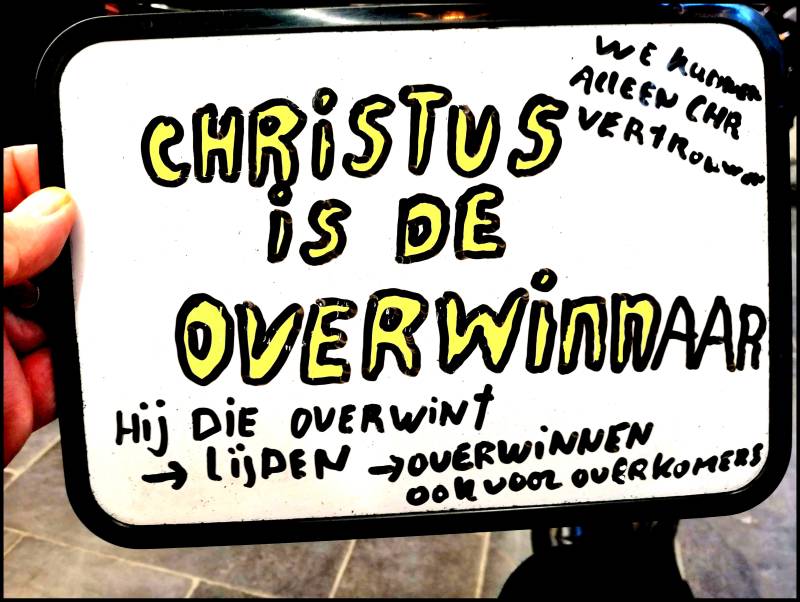 WE KUNNEN
ALLEEN CHR
VERTROUWEN
CHRiSTUS
is DE
OVERWiNNAAR
Hij DiE OVERWiNT
→ LijDEN → OVERWiNNEN
OOK VOOR OVERKOMERS